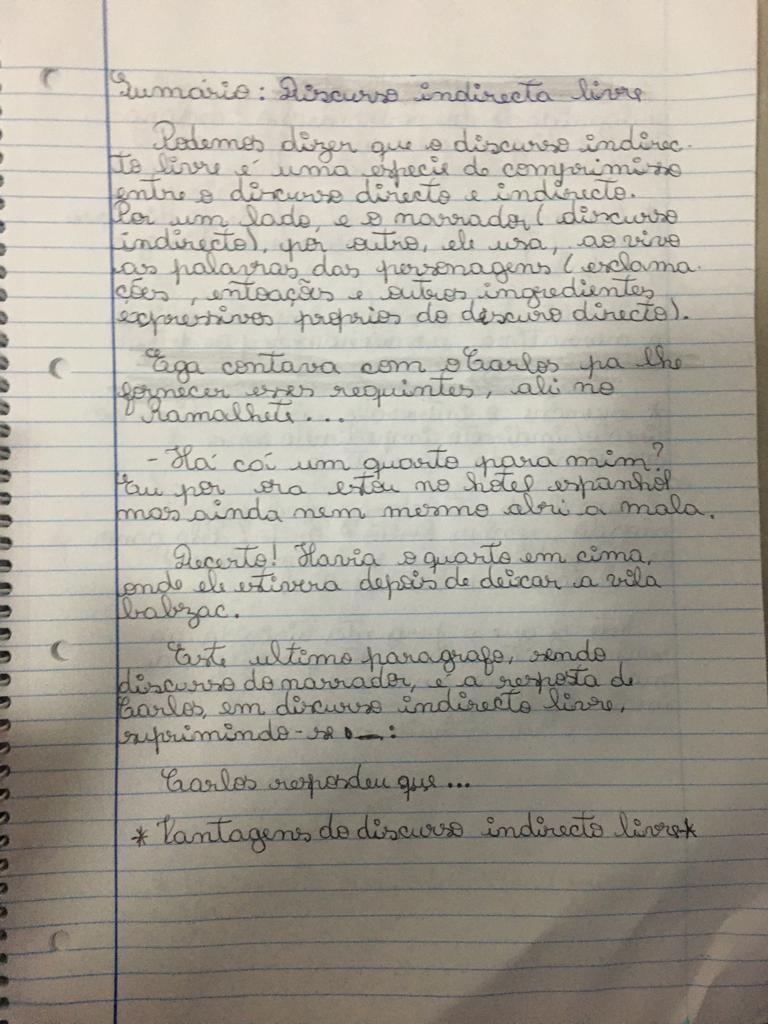 Sumário: Discurso indirecta livre
Podemos dizer que o discurso indirec-
to livre é uma especie de comprimisso
entre o discurso directo e indirecto.
Por um lado, e o narrador (discurso
indirecto), por outro, ele usa, ao vivo
as palavras das personagens (exclama-
ções, entoações e outros ingredientes
expressivos proprios do discuro directo).
Ega contava com o Carlos pa lhe
fornecer esses requintes, ali no
Ramalhete...
- Há cá um quarto para mim?
Eu por ora estou no hotel espanhol
mas ainda nem mesmo abri a mala.
Decerto! Havia o quarto em cima,
onde ele estivera depois de deixar a vila
balzac.
Este ultimo paragrafo, sendo
discurso do narrador, é a resposta de
Carlos, em discurso indirecto livre,
suprimindo-se :
Carlos respondeu que...
* Vantagens do discurso indirecto livre*